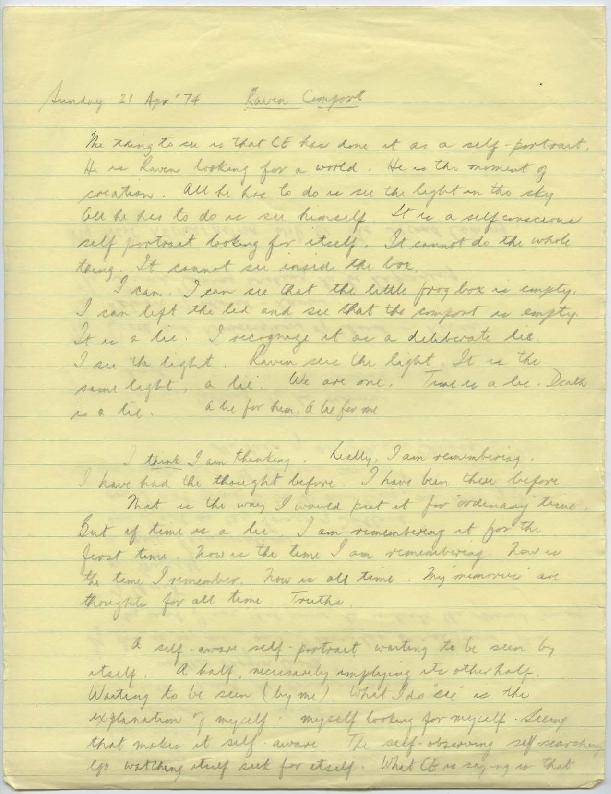 Sunday 21 Apr '74 Raven Comport
The thing to see is that CE has done it as a self-portrait.
He is Raven looking for a world. He is the moment of
creation. All he has to do is see the light in the sky
All he has to do is see himself. It is a selfconscious
self portrait looking for itself. It cannot do the whole
thing. It cannot see inside the box.
I can. I can see that the little frog box is empty.
I can lift the lid and see that the comport is empty.
It is a lie. I recognize it as a deliberate lie.
I see the light. Raven sees the light. It is the
same light, a lie. We are one. Time is a lie. Death
is a lie. A lie for him, A lie for me
I think I am thinking. Really, I am remembering.
I have had the thought before. I have been there before
That is the way I would put it for "ordinary" time.
But if time is a lie, I am remembering it for the
first time. Now is the time I am remembering. Now is
the time I remember. Now is all time. My "memories" are
thoughts for all time. Truths.
A self-aware self-portrait waiting to be seen by
itself. A half, necessarily implying its other half.
Waiting to be seen (by me) What I do "see" is the
explanation of myself - myself looking for myself. Seeing
that makes it self-aware. The self-observing self-searching
ego watching itself seek for itself. What CE is saying is that